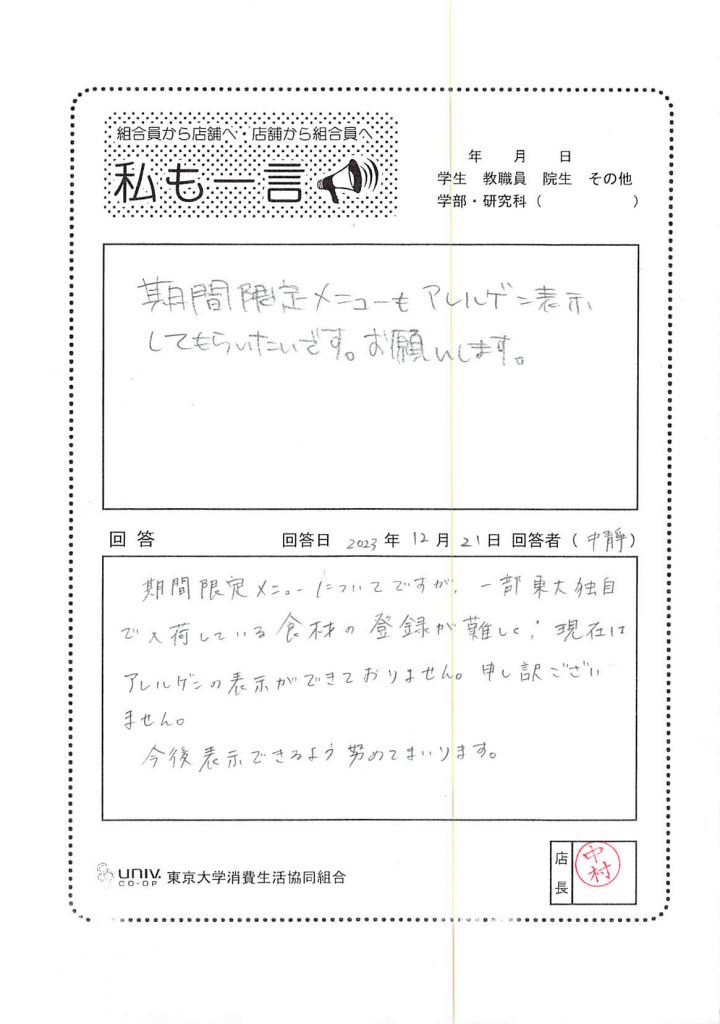 組合員から店舗へ・店舗から組合員へ
私も一言
年 月 日
学生 教職員 院生 その他
学部・研究科（ ）
期間限定メニューもアレルゲン表示
してもらいたいです。お願いします。
回答 回答日 2023 年 12 月 21 日 回答者（中靜）
期間限定メニューについてですが、一部東大独自
で入荷している食材の登録が難しく、現在は
アレルゲンの表示ができておりません。申し訳ござい
ません。
今後表示できるよう努めてまいります。
UNIV.
CO-OP 東京大学消費生活協同組合
店長
中村